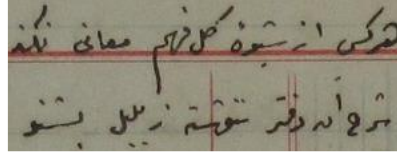 هرکس از شیوهٔ گل فهم معانی نکند
شرح آن دفتر ننوشته ز بلبل بشنو